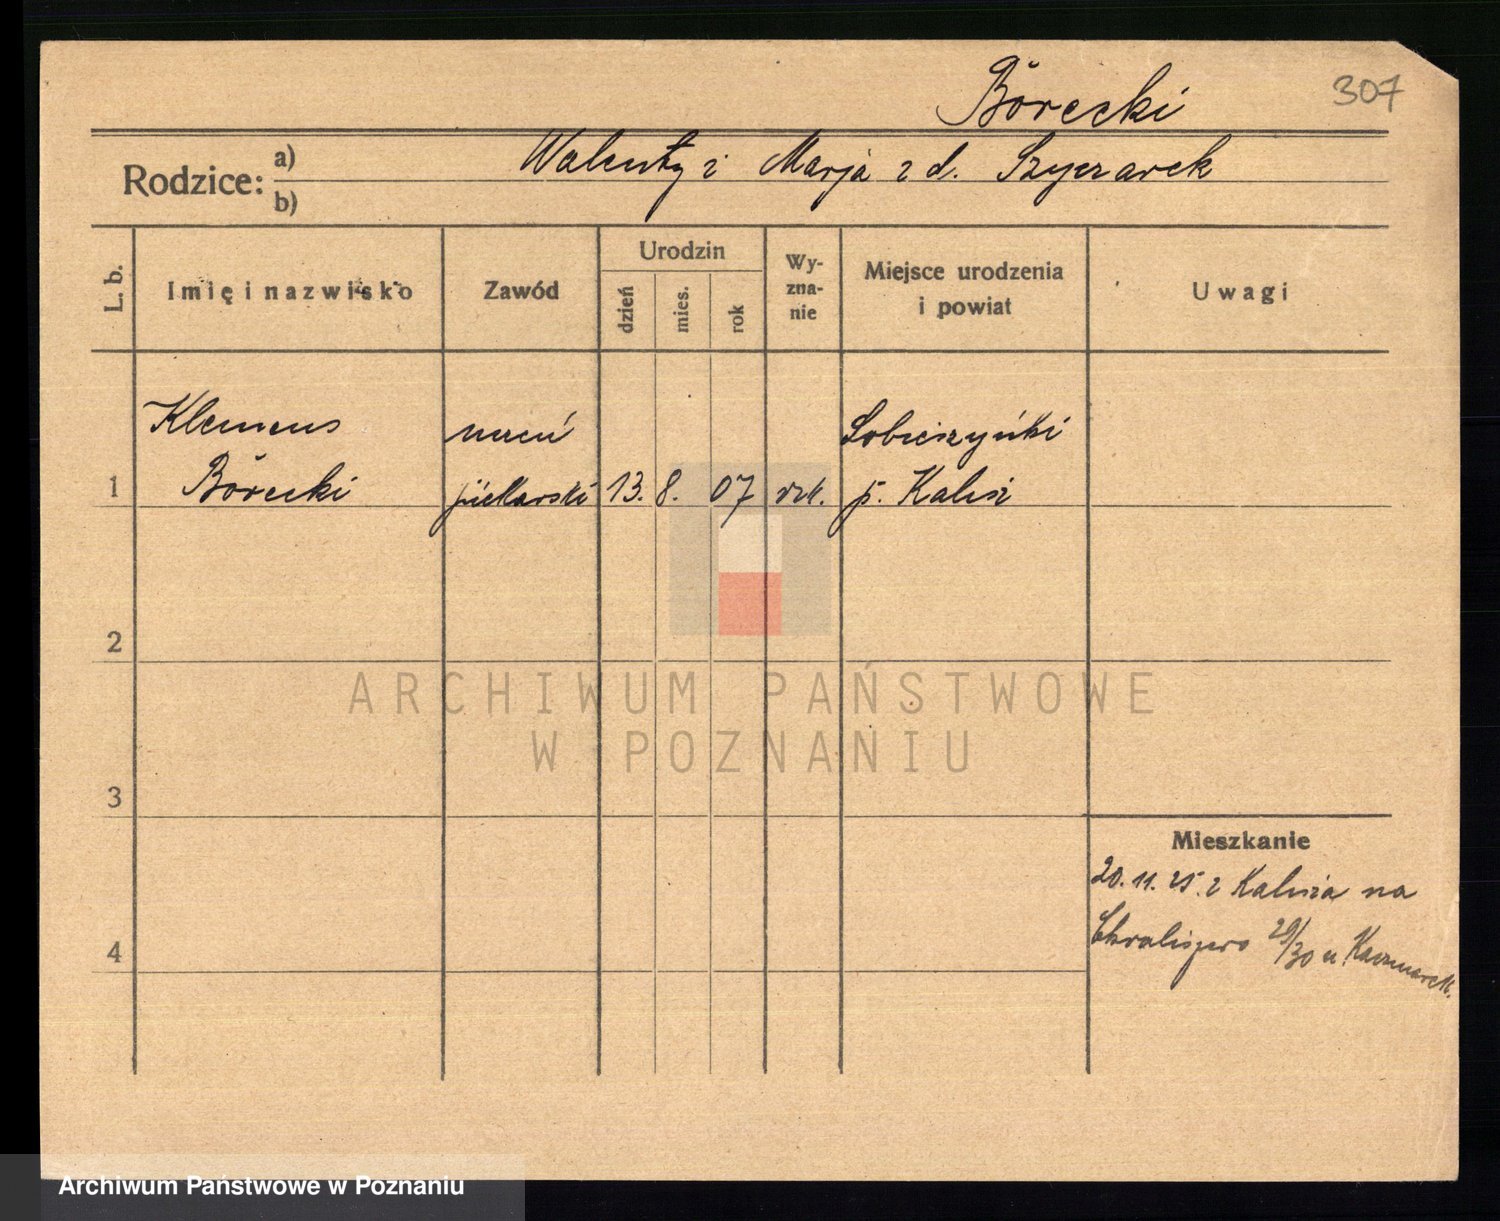 Börecki 307
Rodzice: a) Walenty i Marja z d. Szyczarek
b)
L. b. Imię i nazwisko Zawód Urodzin dzień mies. rok Wy-zna-nie Miejsce urodzenia i powiat Uwagi
Klemens uczeń Sobieszyńki
1 Börecki piekarski 13. 8. 07 rzk. p. Kalisz
2
ARCHIWUM PAŃSTWOWE
W POZNANIU
3
Mieszkanie
20. 11. 25. z Kalisza na
4 29/30 u Kaczmarek.
Archiwum Państwowe w Poznaniu